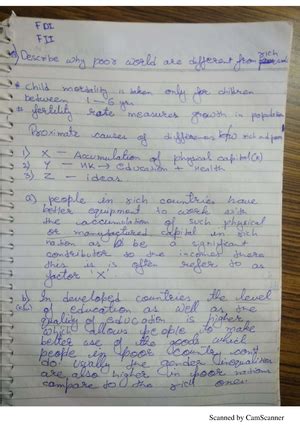 FDI
FII
Describe why poor world are different from rich
* Child mortality is taken only for children
between 1-6 yr.
* fertility rate measures growth in population
Proximate causes of difference b/w rich and poor
1) X - Accumulation of physical capital (a)
2) Y - HK → education + health
3) Z - ideas
a) people in rich countries have
better equipment to work with
the accumulation of such physical
or manufactured capital in rich
nation as be a significant
contributor to the incomes there
this is often refer to as
factor 'X'.
b) In developed countries the level
of education as well as the
quality of education is higher
which allows people to make
better use of the goods which
people in poor country can't
do usually the gender inequalities
are also higher in poor nations
compare to the rich ones
Scanned by CamScanner